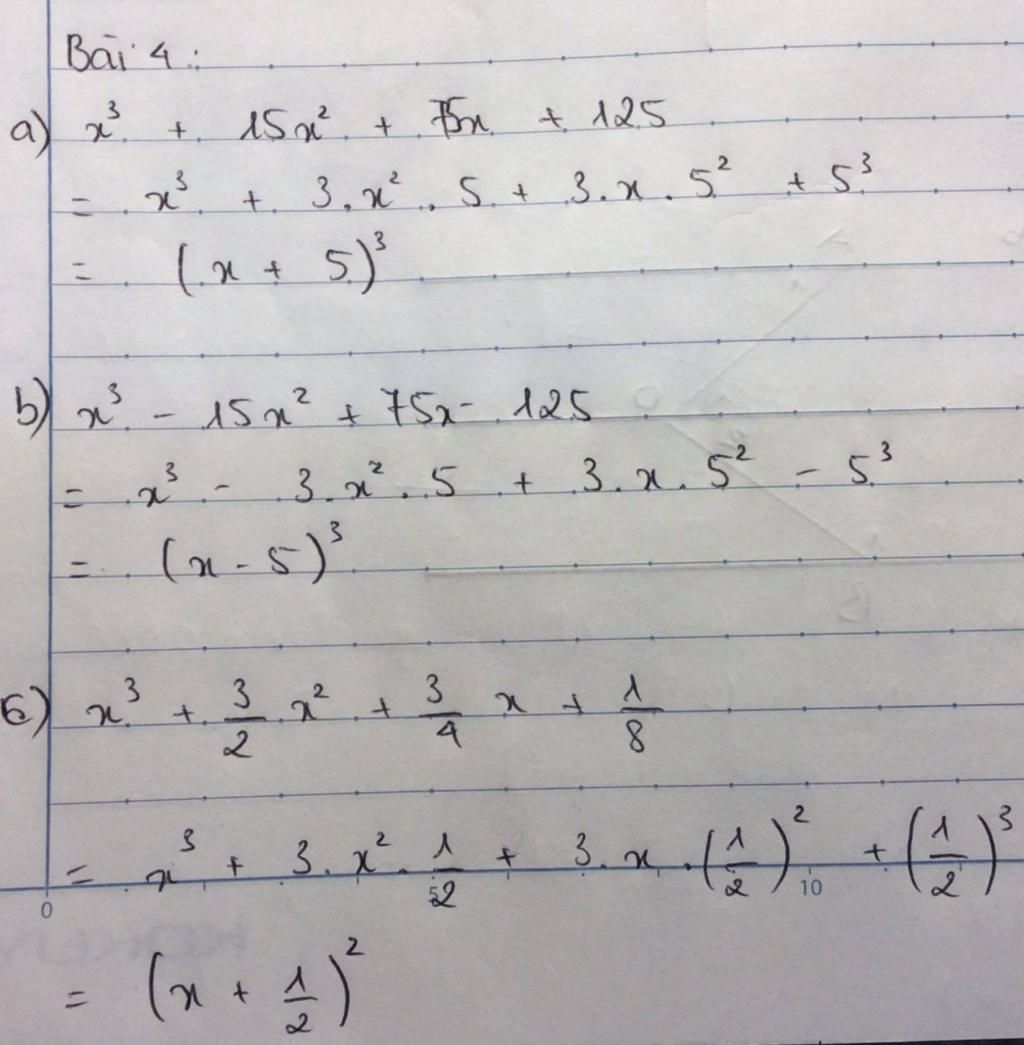 Bài 4:
a) x³ + 15x² + 75x + 125
= x³ + 3.x².5 + 3.x.5² + 5³
= (x + 5)³
b) x³ - 15x² + 75x - 125
= x³ - 3.x².5 + 3.x.5² - 5³
= (x - 5)³
c) x³ + 3/2 x² + 3/4 x + 1/8
= x³ + 3.x².1/2 + 3.x.(1/2)² + (1/2)³
0 5 10
= (x + 1/2)²